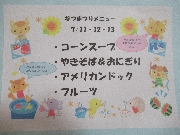 なつまつりメニュー
7/11・12・13
・コーンスープ
・やきそば&おにぎり
・アメリカンドック
・フルーツ